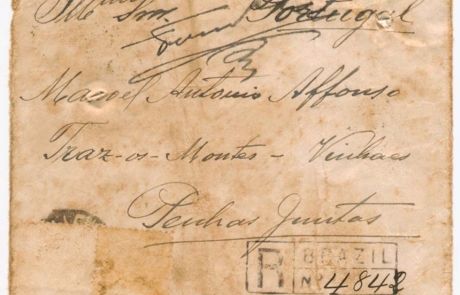 Snr. Portugal
Manoel Antonio Affonso
Traz-os-Montes - Vinhaes
Penhas Juntas
R BRAZIL
Nº 4842